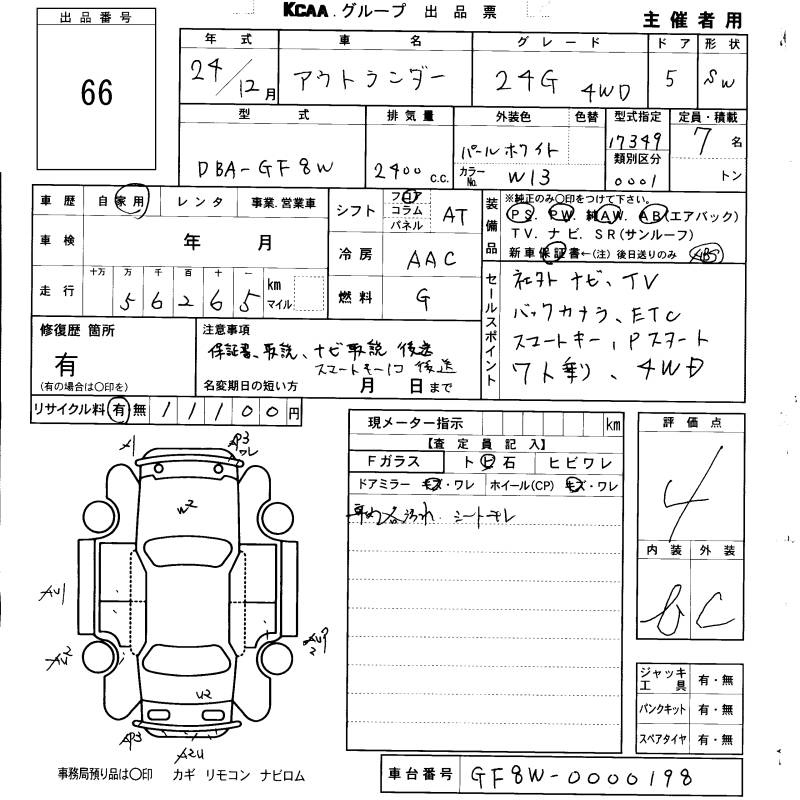 KCAA グループ 出品票
主催者用
出品番号
66
年式 車名 グレード ドア 形状
24/12月 アウトランダー 24G 4WD 5 SW
型式 排気量 外装色 色替 型式指定 定員・積載
DBA-GF8W 2400c.c. パールホワイト 17349 7名
類別区分
カラーNo. W13 0001 トン
車歴 自家用 レンタ 事業.営業車
シフト フロア コラム パネル AT
装備品
※純正のみ○印をつけて下さい。
PS. PW. 純AW. AB(エアバック)
TV. ナビ. SR(サンルーフ)
新車保証書←(注)後日送りのみ ABS
車検 年 月
冷房 AAC
走行 十万 万 千 百 十 一 km マイル
56265
燃料 G
セールスポイント
社外ナビ、TV
バックカメラ、ETC
スマートキー、Pスタート
7人乗り、4WD
修復歴 箇所
有
(有の場合は○印を)
注意事項
保証書、取説、ナビ取説 後送
スマートキー1コ 後送
名変期日の短い方 月 日まで
リサイクル料 有 無 11100円
現メーター指示 km
【査定員記入】
Fガラス トビ石 ヒビワレ
ドアミラー キズ・ワレ ホイール(CP) キズ・ワレ
シート
評価点
4
内装 外装
b C
A1
AP3
ワレ
W2
AU1
AU2
U2
AP3
A2U
ジャッキ工具 有・無
パンクキット 有・無
スペアタイヤ 有・無
事務局預り品は○印 カギ リモコン ナビロム
車台番号 GF8W-0000198